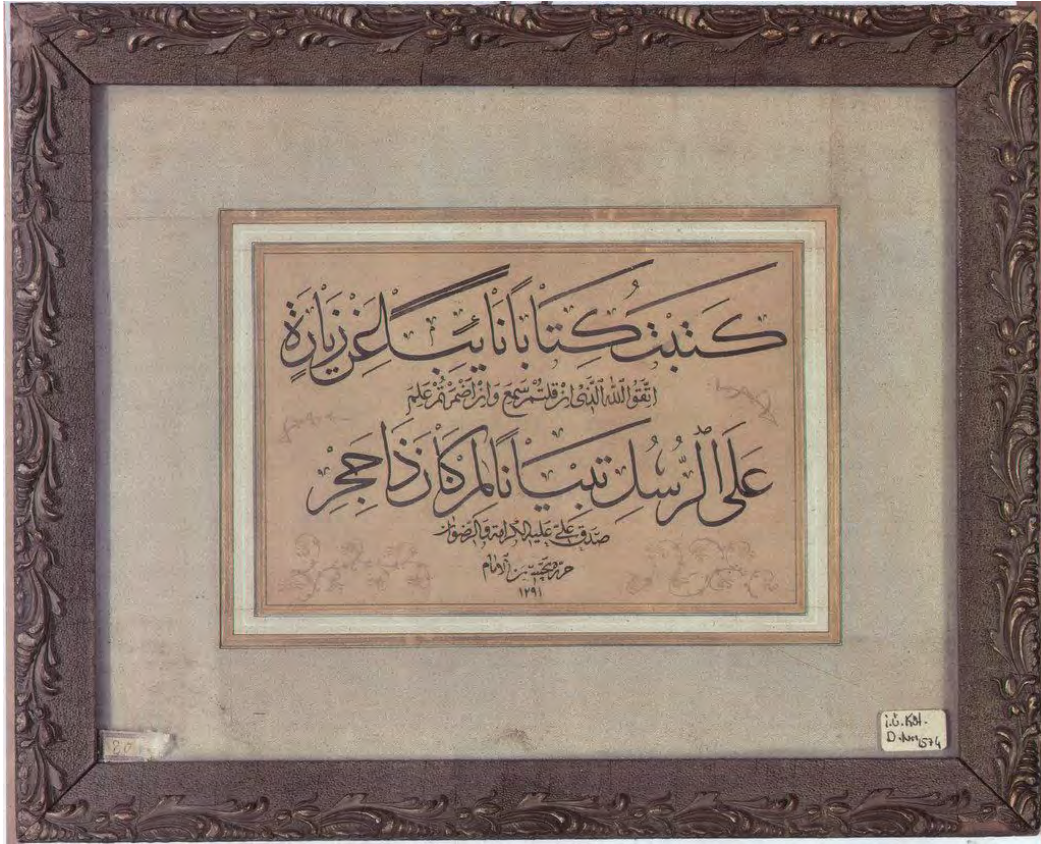 كتبت كتابا نائبا عن زيارة
اتقوا الله الذي ان قلتم سمع وان اضمرتم علم
على الرسل تبيانا لمن كان ذا حجر
صدق علي عليه الكرامة والرضوان
حرره بن الامام
١٢٩١
80
D.No